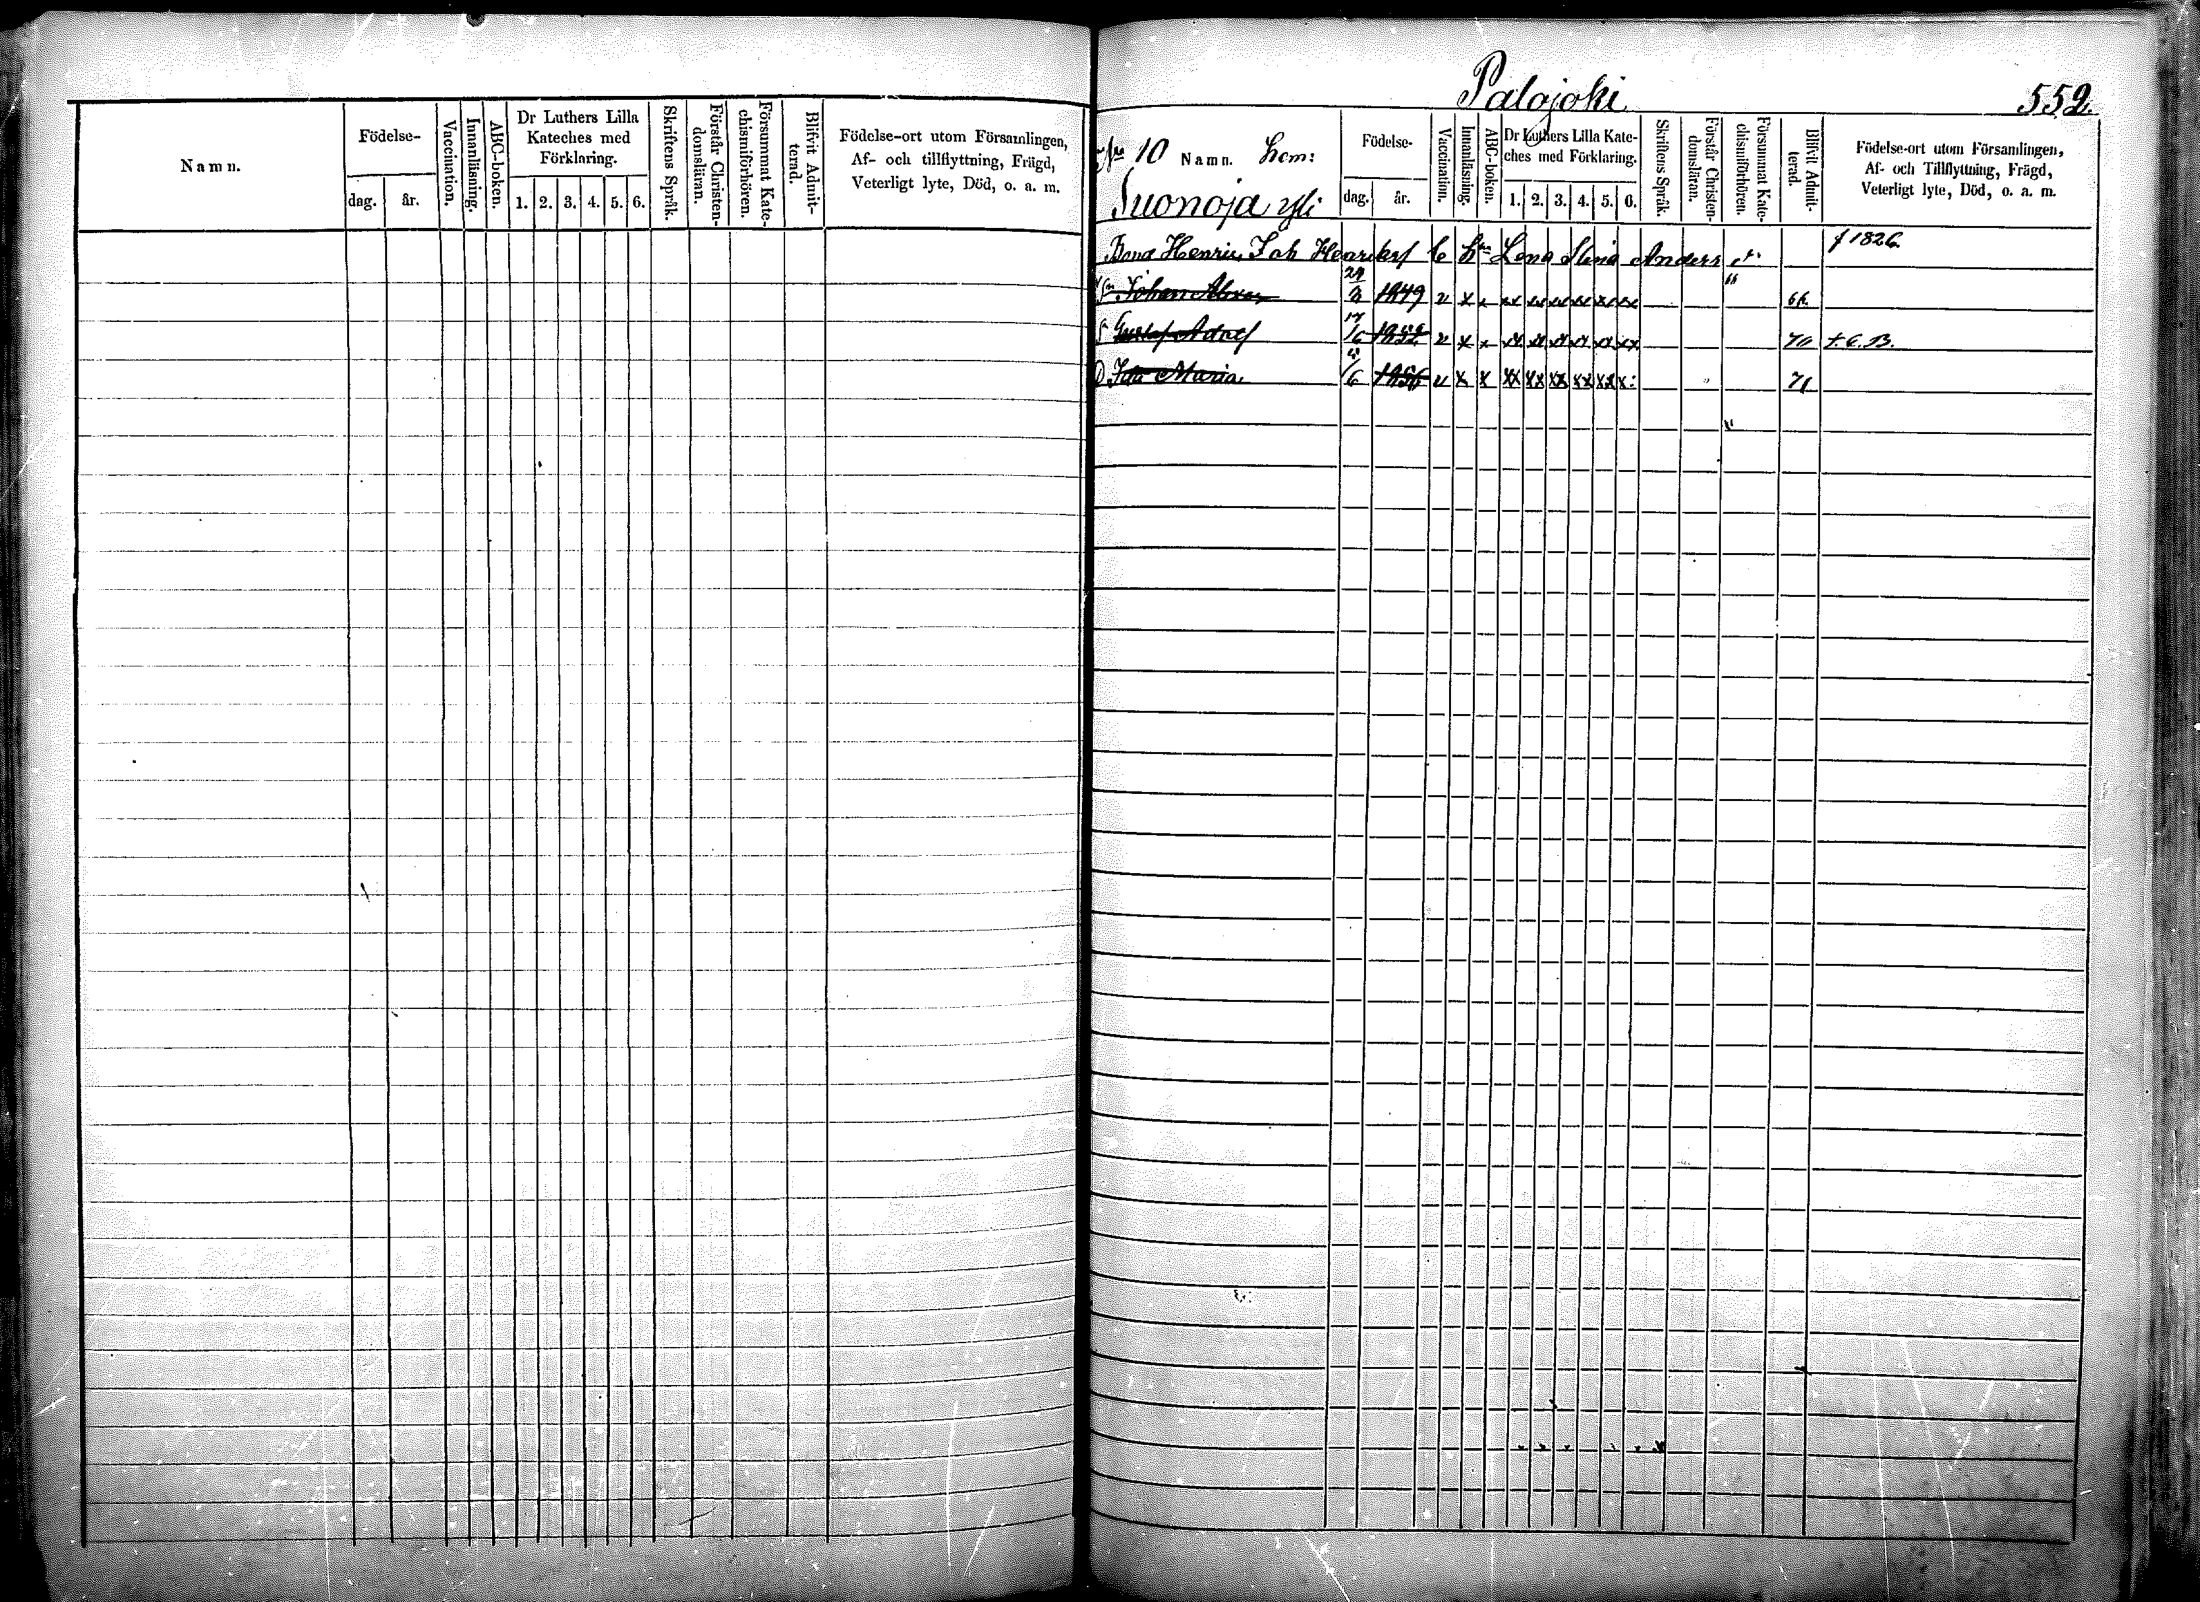 Namn.
Födelse-
dag.
år.
Vaccination.
Innanläsning.
ABC-boken.
Dr Luthers Lilla
Kateches med
Förklaring.
1. 2. 3. 4. 5. 6.
Skriftens Språk.
Förstår Christen-
domsläran.
Försummat Kate-
chismiförhören.
Blifvit Admit-
terad.
Födelse-ort utom Församlingen,
Af- och tillflyttning, Frägd,
Veterligt lyte, Död, o. a. m.
Palojoki
552.
N:o 10 Namn. hem:
Suonoja yli
Födelse-
dag.
år.
Vaccination.
Innanläsning.
ABC-boken.
Dr Luthers Lilla Kate-
ches med Förklaring.
1. 2. 3. 4. 5. 6.
Skriftens Språk.
Förstår Christen-
domsläran.
Försummat Kate-
chismiförhören.
Blifvit Admit-
terad.
Födelse-ort utom Församlingen,
Af- och Tillflyttning, Frägd,
Veterligt lyte, Död, o. a. m.
Henric Joh Lena Stina Anders f 1826.
Johan 1849 v x
Gustaf Adolf 17/6 v x 70
Maria 6 1856 v x x xx xx xx xx xx x: 71